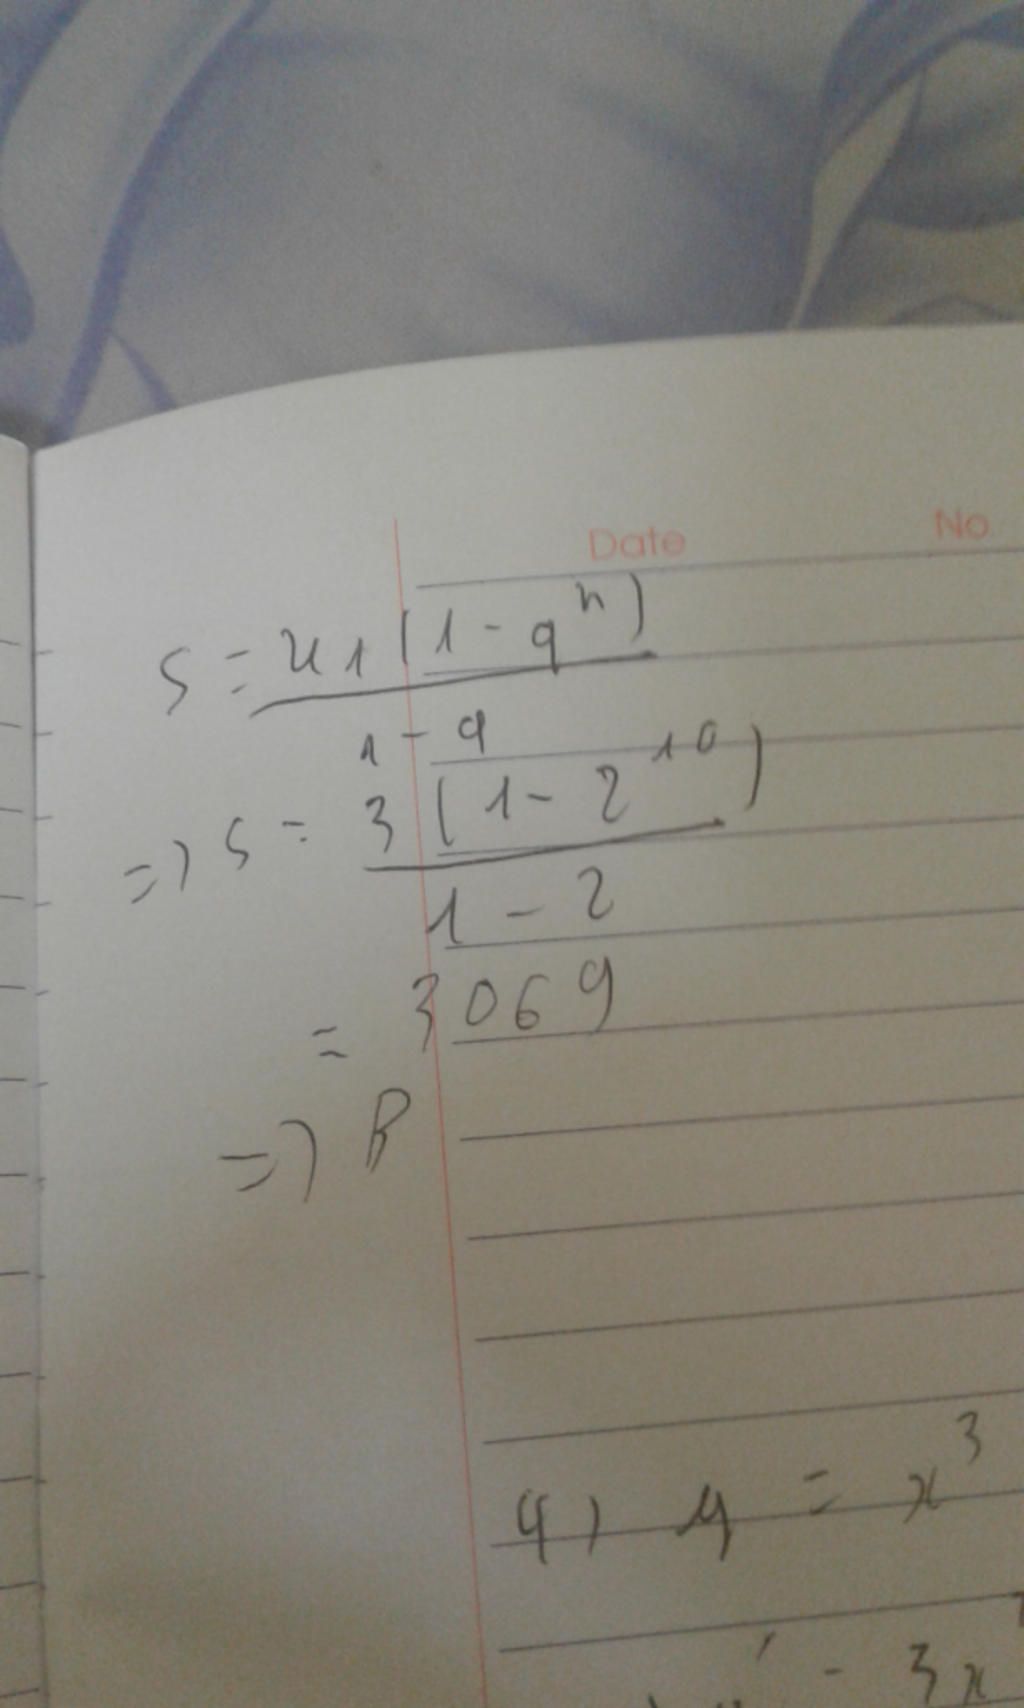 Date No
S = u1(1-q^n)
1-q
=> S = 3(1-2^10)
1-2
= 3069
=> B
4) y = x^3
y' = 3x